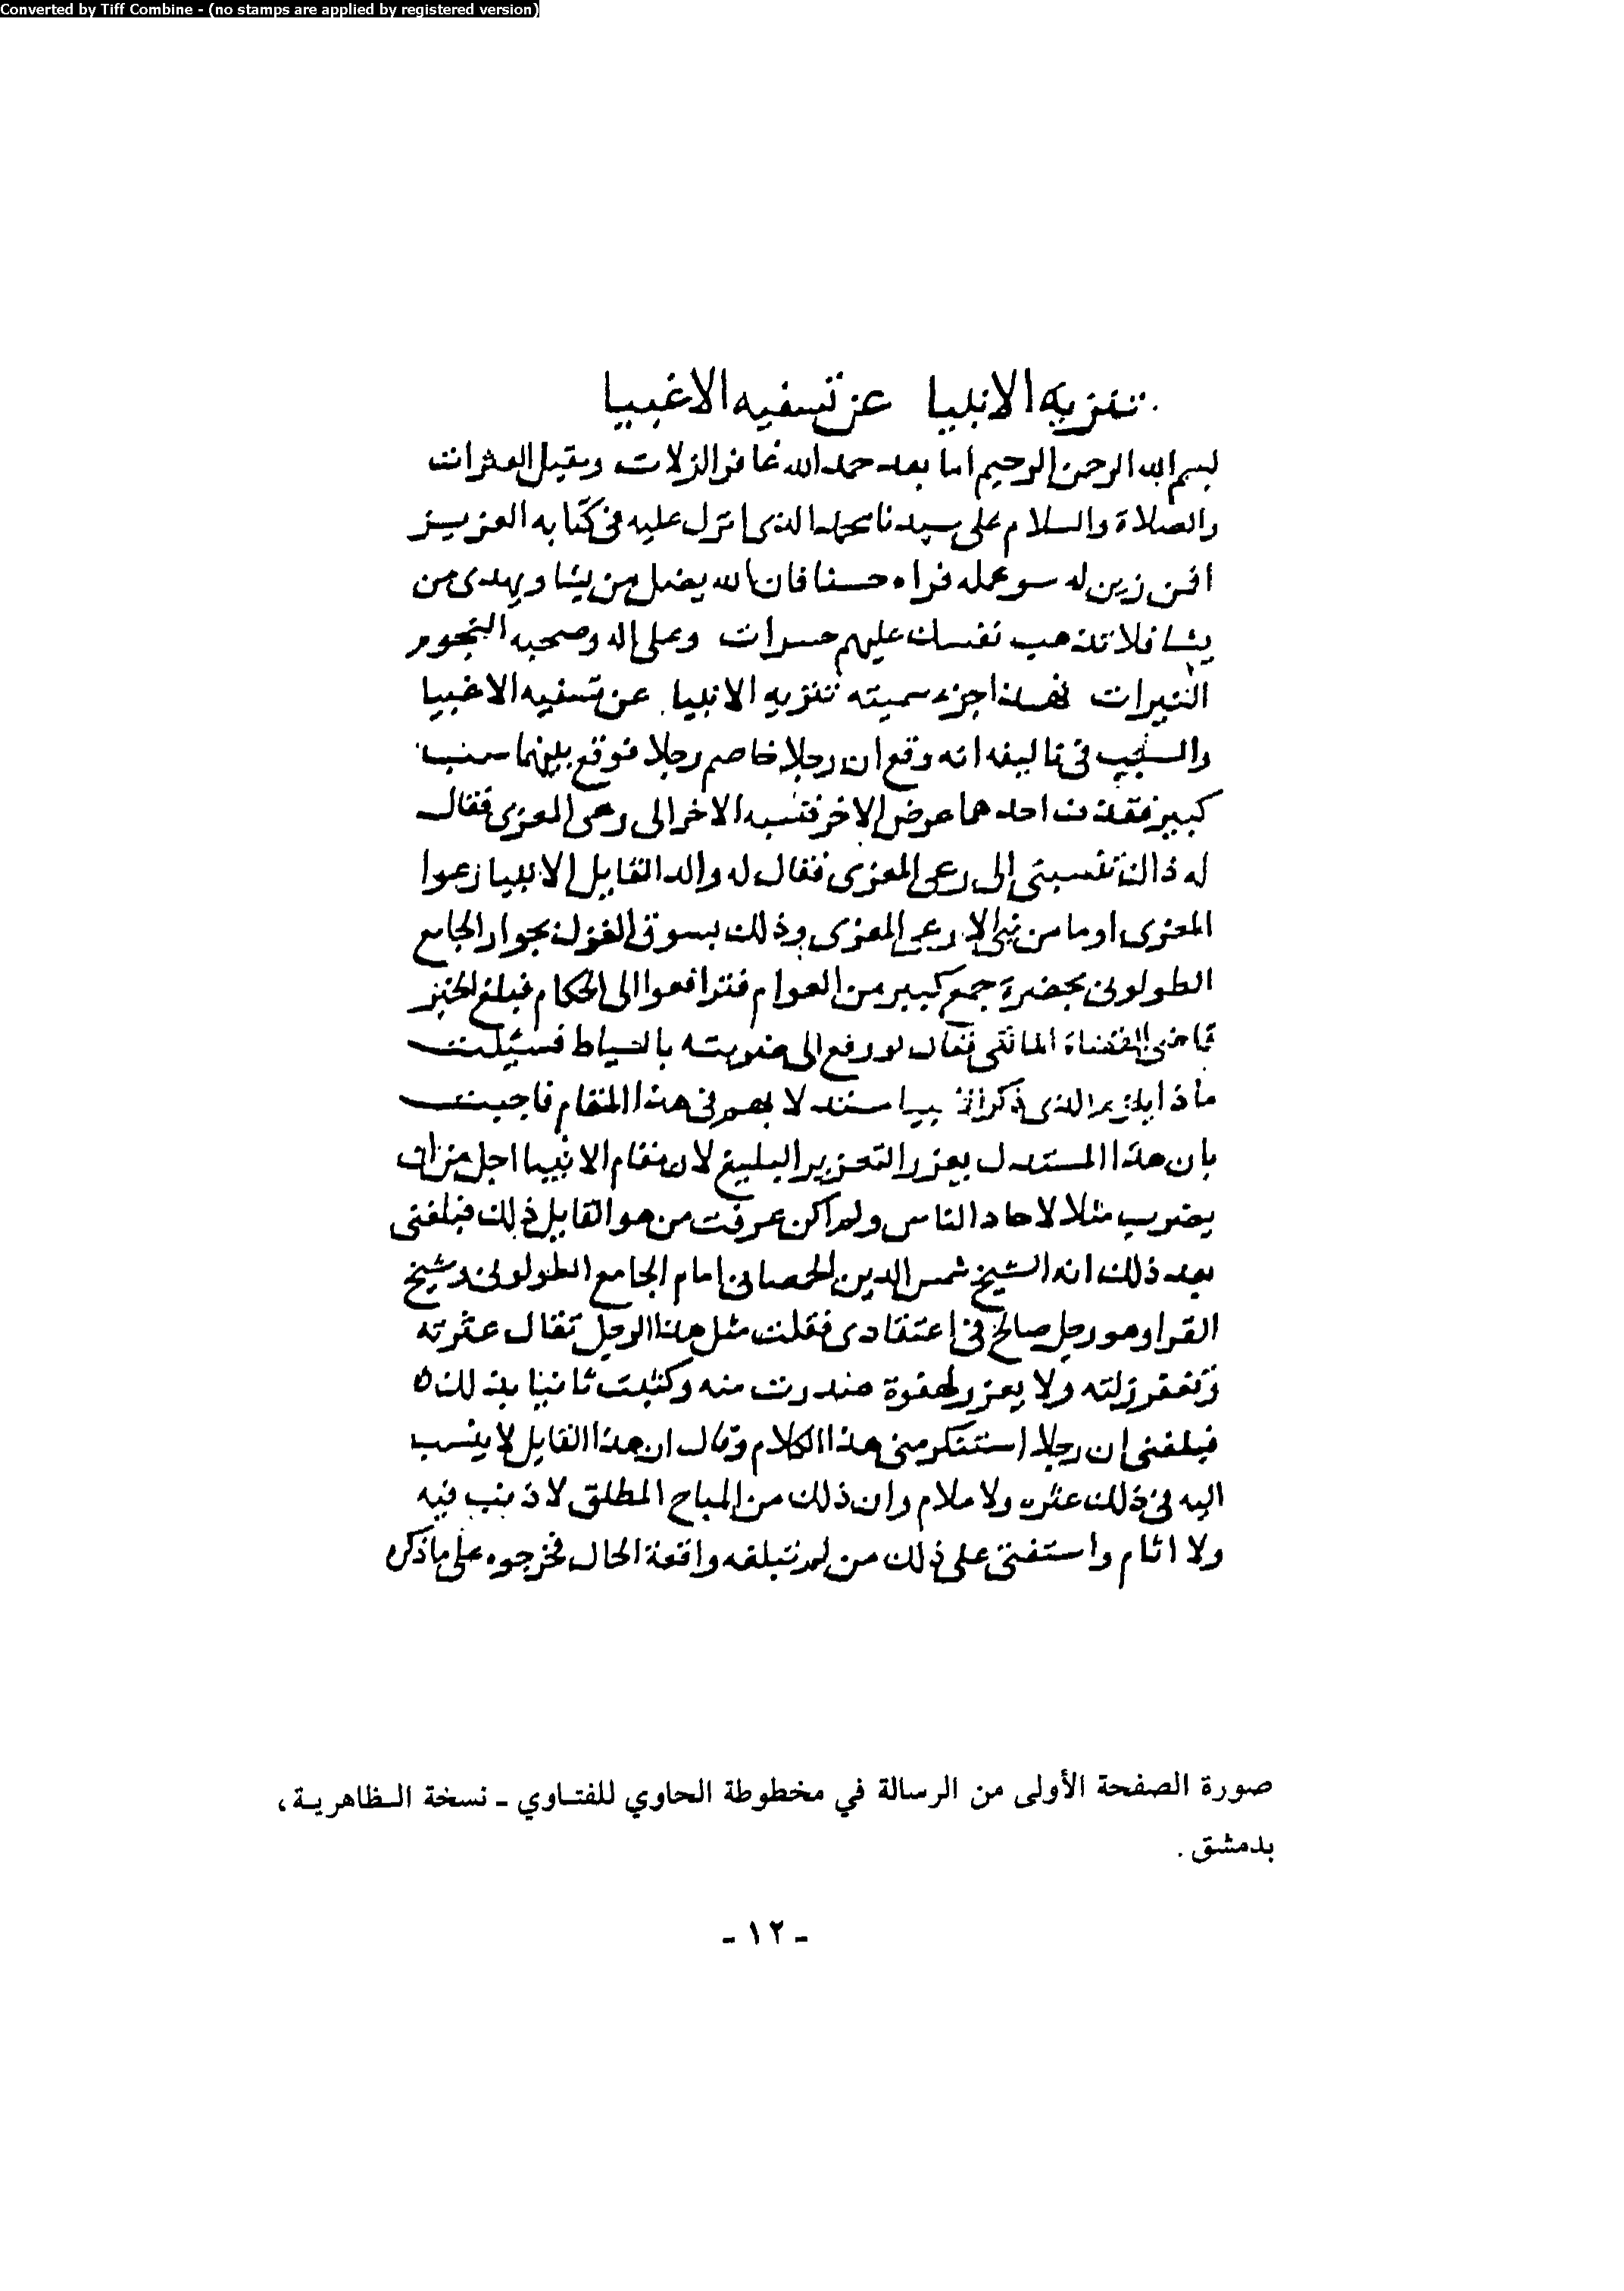 Converted by Tiff Combine - (no stamps are applied by registered version)
تنزيه الانبيا عن تسفيه الاغبيا
بسم الله الرحمن الرحيم اما بعد حمد الله غافر الزلات ومقيل العثرات
والصلاة والسلام على سيدنا محمد الذى انزل عليه فى كتابه العزيز
افمن زين له سو عمله فراه حسنا فان الله يضل من يشا ويهدى من
يشا فلا تذهب نفسك عليهم حسرات وعلى اله وصحبه النجوم
النيرات فهذا جزء سميته تنزيه الانبيا عن تسفيه الاغبيا
والسبب فى تاليفه انه وقع ان رجلا خاصم رجلا فوقع بينهما سب
كبير فقذف احدهما عرض الاخر فنسبه الاخر الى رعى المعزى فقال
له ذاك تنسبنى الى رعى المعزى فقال له والد القايل الانبيا رعوا
المعزى او ما من نبى الا رعى المعزى وذلك بسوق الغزل بجوار الجامع
الطولونى بحضرة جمع كبير من العوام فترافعوا الى الحكام فبلغ الخبر
قاضى القضاة المالكى فقال لو رفع الى ضربته بالسياط فسئلت
ماذا يلزم الذى ذكر الانبيا مستدلا بهم فى هذا المقام فاجبت
بان هذا المستدل يعزر التعزير البليغ لان مقام الانبيا اجل من ان
يضرب مثلا لاحاد الناس ولم اكن عرفت من هو القايل ذلك فبلغنى
بعد ذلك انه الشيخ شمس الدين الحمصانى امام الجامع الطولونى وشيخ
القرا وهو رجل صالح فى اعتقادى فقلت مثل هذا الرجل تقال عثرته
وتغفر زلته ولا يعزر لهفوة صدرت منه وكتبت ثانيا بذلك ه
فبلغنى ان رجلا استنكر منى هذا الكلام وقال ان هذا القايل لا ينسب
اليه فى ذلك عثره ولا ملام وان ذلك من المباح المطلق لا ذنب فيه
ولا اثام واستفتى على ذلك من لم تبلغه واقعة الحال فخرجوه على ما ذكره
صورة الصفحة الأولى من الرسالة في مخطوطة الحاوي للفتاوي - نسخة الظاهرية،
بدمشق .
- ١٢ -